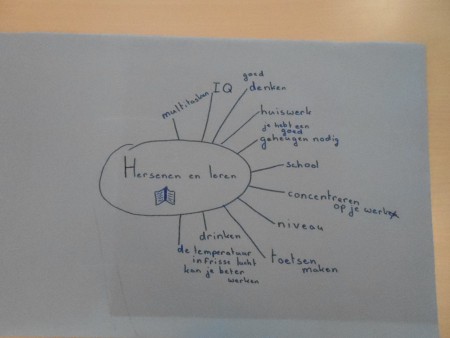 Hersenen en leren
multitasken
IQ
goed
denken
huiswerk
je hebt een
goed
geheugen nodig
school
concentreren
op je werk
niveau
toetsen
maken
drinken
de temperatuur
in Frisse lucht
kan je beter
werken